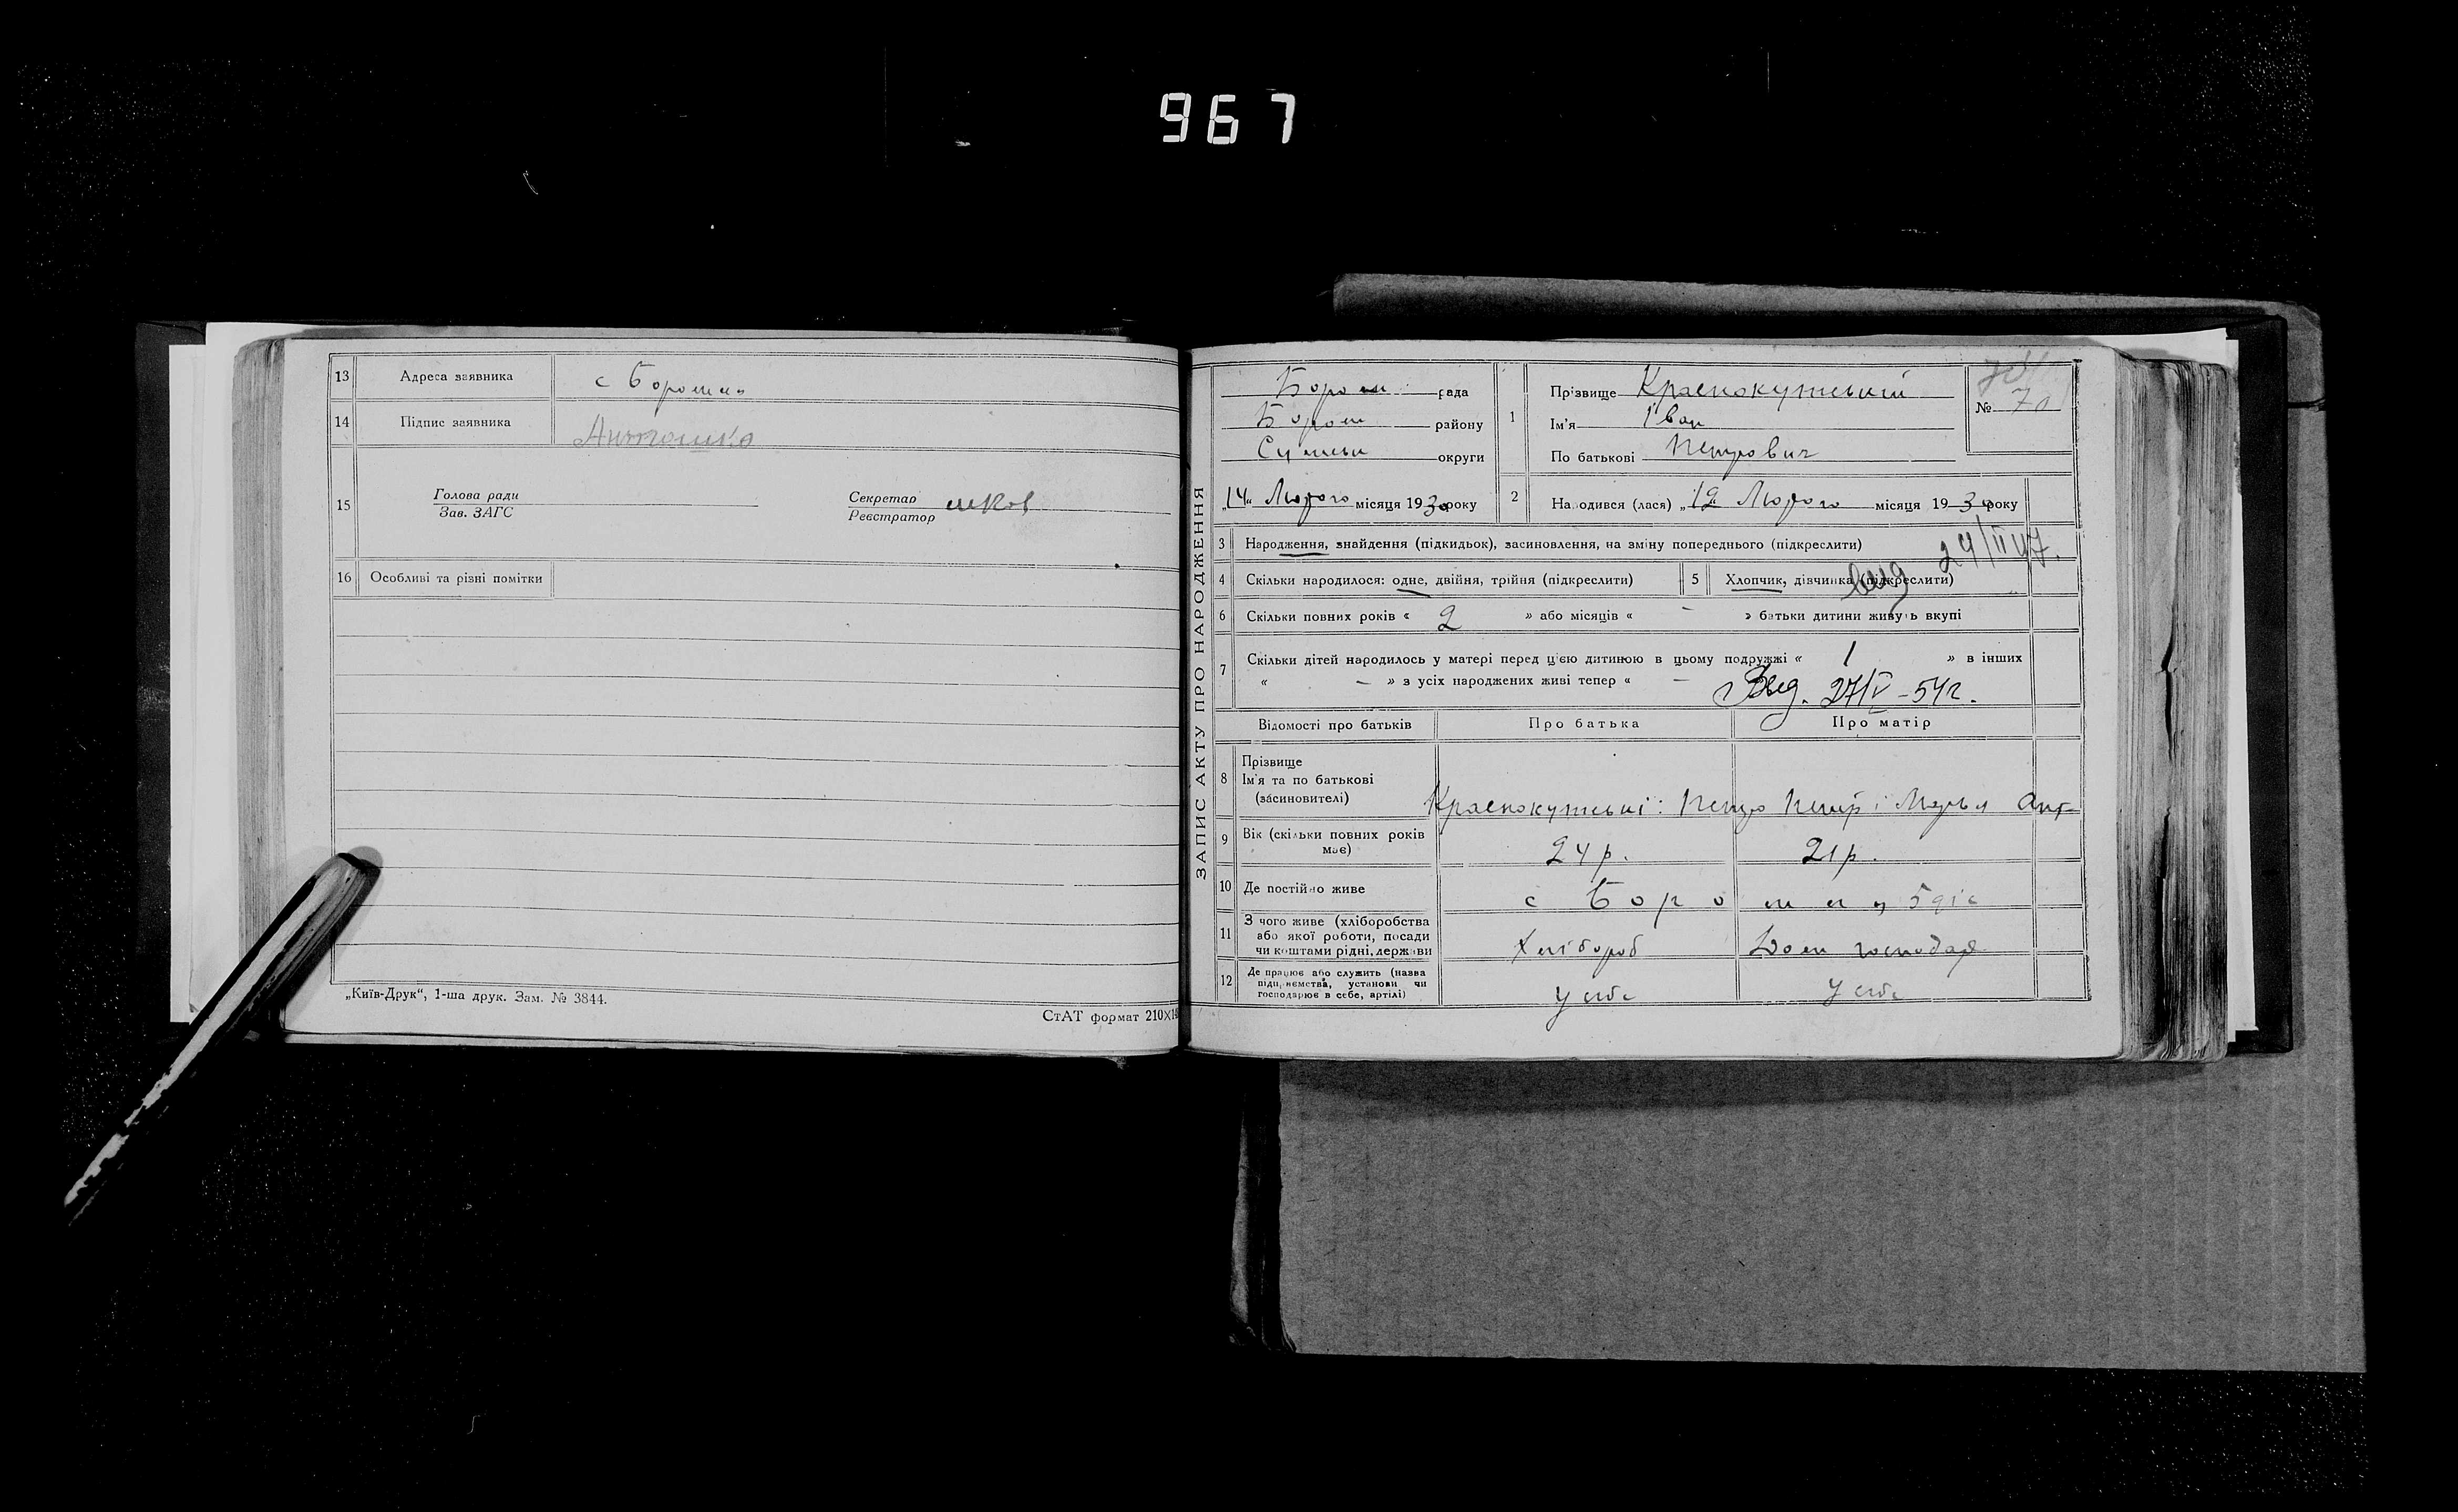 967
13 Адреса заявника с Боромл
14 Підпис заявника Антошко
15 Голова ради
Зав. ЗАГС
Секретар
Реєстратор
16 Особливі та різні помітки
„Київ-Друк“, 1-ша друк. Зам. № 3844.
СтАТ формат 210X1
ЗАПИС АКТУ ПРО НАРОДЖЕННЯ
Боромл рада
Боромл району
Сумськ округи
„14“ Лютого місяця 1930 року
1 Прізвище Краснокутський
Ім'я Іван
По батькові Петрович
№ 70
2 Народився (лася) „12 Лютого місяця 1930 року
3 Народження, знайдення (підкидьок), засиновлення, на зміну попереднього (підкреслити)
24/II 47.
4 Скільки народилося: одне, двійня, трійня (підкреслити)
5 Хлопчик, дівчинка (підкреслити)
6 Скільки повних років « 2 » або місяців « - » батьки дитини живуть вкупі
7 Скільки дітей народилось у матері перед цією дитиною в цьому подружжі « 1 » в інших
« — » з усіх народжених живі тепер « —
27/V - 54 г.
Відомості про батьків Про батька Про матір
8 Прізвище
Ім'я та по батькові
(засиновителі)
Краснокутські: Петро Петр і Марья Ант
9 Вік (скільки повних років має) 24 р. 21 р.
10 Де постійно живе с Боромл
11 З чого живе (хліборобства
або якої роботи, посади
чи коштами рідні, держави
Хлібороб Дом господар
12 Де працює або служить (назва
підприємства, установи чи
господарює в себе, артілі)
У себе У себе